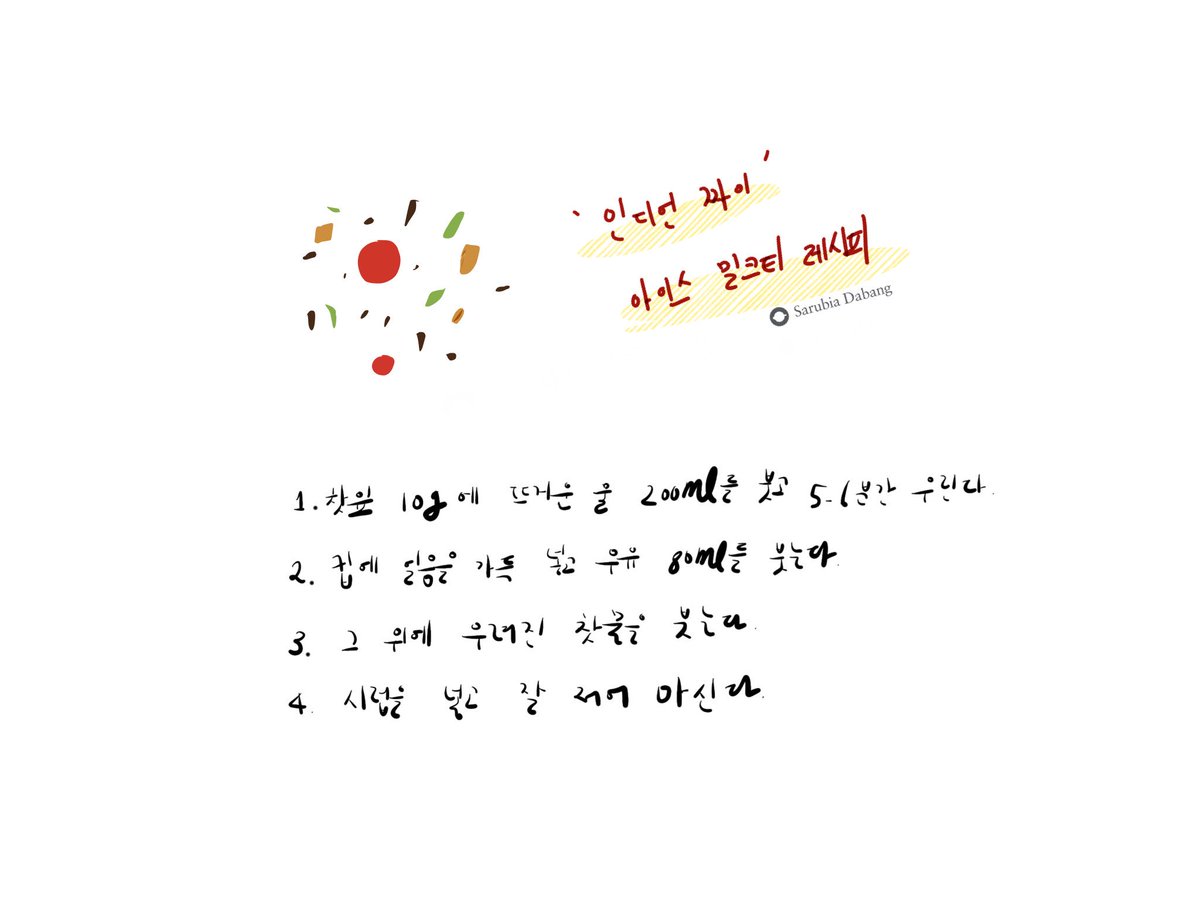 '인디언 짜이'
아이스 밀크티 레시피
Sarubia Dabang
1. 찻잎 10g에 뜨거운 물 200ml를 붓고 5-6분간 우린다.
2. 컵에 얼음을 가득 넣고 우유 80ml를 붓는다.
3. 그 위에 우려진 찻물을 붓는다.
4. 시럽을 넣고 잘 저어 마신다.